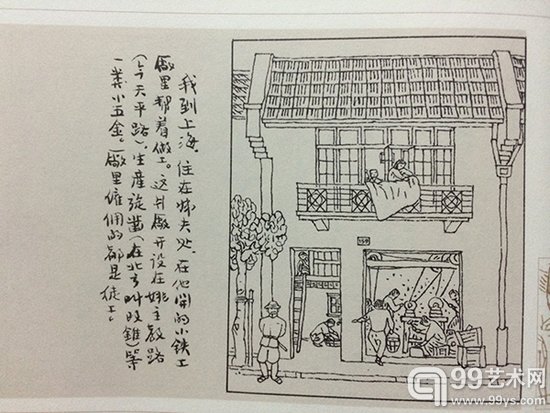 我到上海，住在姊夫处，在他開的小铁工
廠里帮着做工。这爿廠开設在姚主教路
（今天平路），生産旋凿（在北方叫改錐）等
一类小五金。廠里僱佣的都是徒工。
159
99艺术网
www.99ys.com